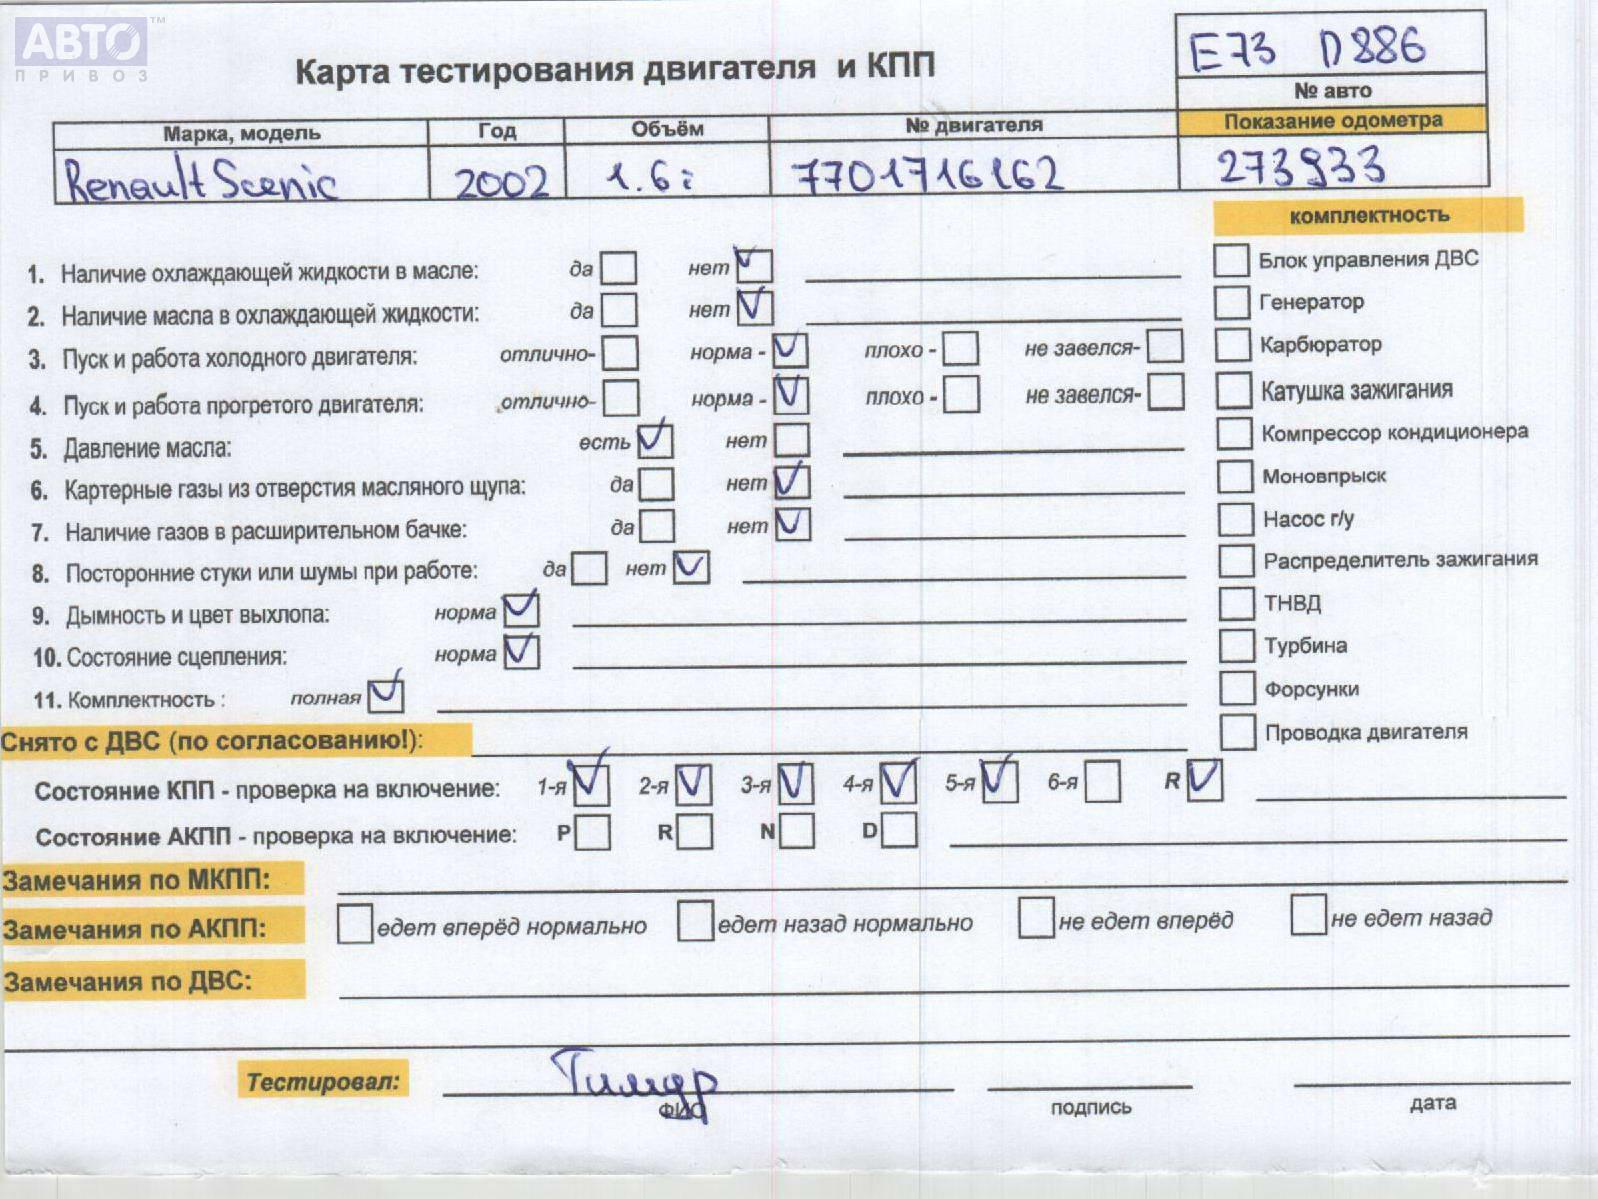 АВТО™
ПРИВОЗ
Карта тестирования двигателя и КПП
E73 D886
№ авто
Марка, модель Год Объём № двигателя Показание одометра
Renault Scenic 2002 1.6i 7701716162 273933
комплектность
1. Наличие охлаждающей жидкости в масле: да нет
Блок управления ДВС
2. Наличие масла в охлаждающей жидкости: да нет
Генератор
3. Пуск и работа холодного двигателя: отлично- норма - плохо - не завелся-
Карбюратор
4. Пуск и работа прогретого двигателя: отлично- норма - плохо - не завелся-
Катушка зажигания
5. Давление масла: есть нет
Компрессор кондиционера
6. Картерные газы из отверстия масляного щупа: да нет
Моновпрыск
7. Наличие газов в расширительном бачке: да нет
Насос г/у
8. Посторонние стуки или шумы при работе: да нет
Распределитель зажигания
9. Дымность и цвет выхлопа: норма
ТНВД
10. Состояние сцепления: норма
Турбина
11. Комплектность : полная
Форсунки
Снято с ДВС (по согласованию!):
Проводка двигателя
Состояние КПП - проверка на включение: 1-я 2-я 3-я 4-я 5-я 6-я R
Состояние АКПП - проверка на включение: P R N D
Замечания по МКПП:
Замечания по АКПП: едет вперёд нормально едет назад нормально не едет вперёд не едет назад
Замечания по ДВС:
Тестировал: Тимур
ФИО подпись дата